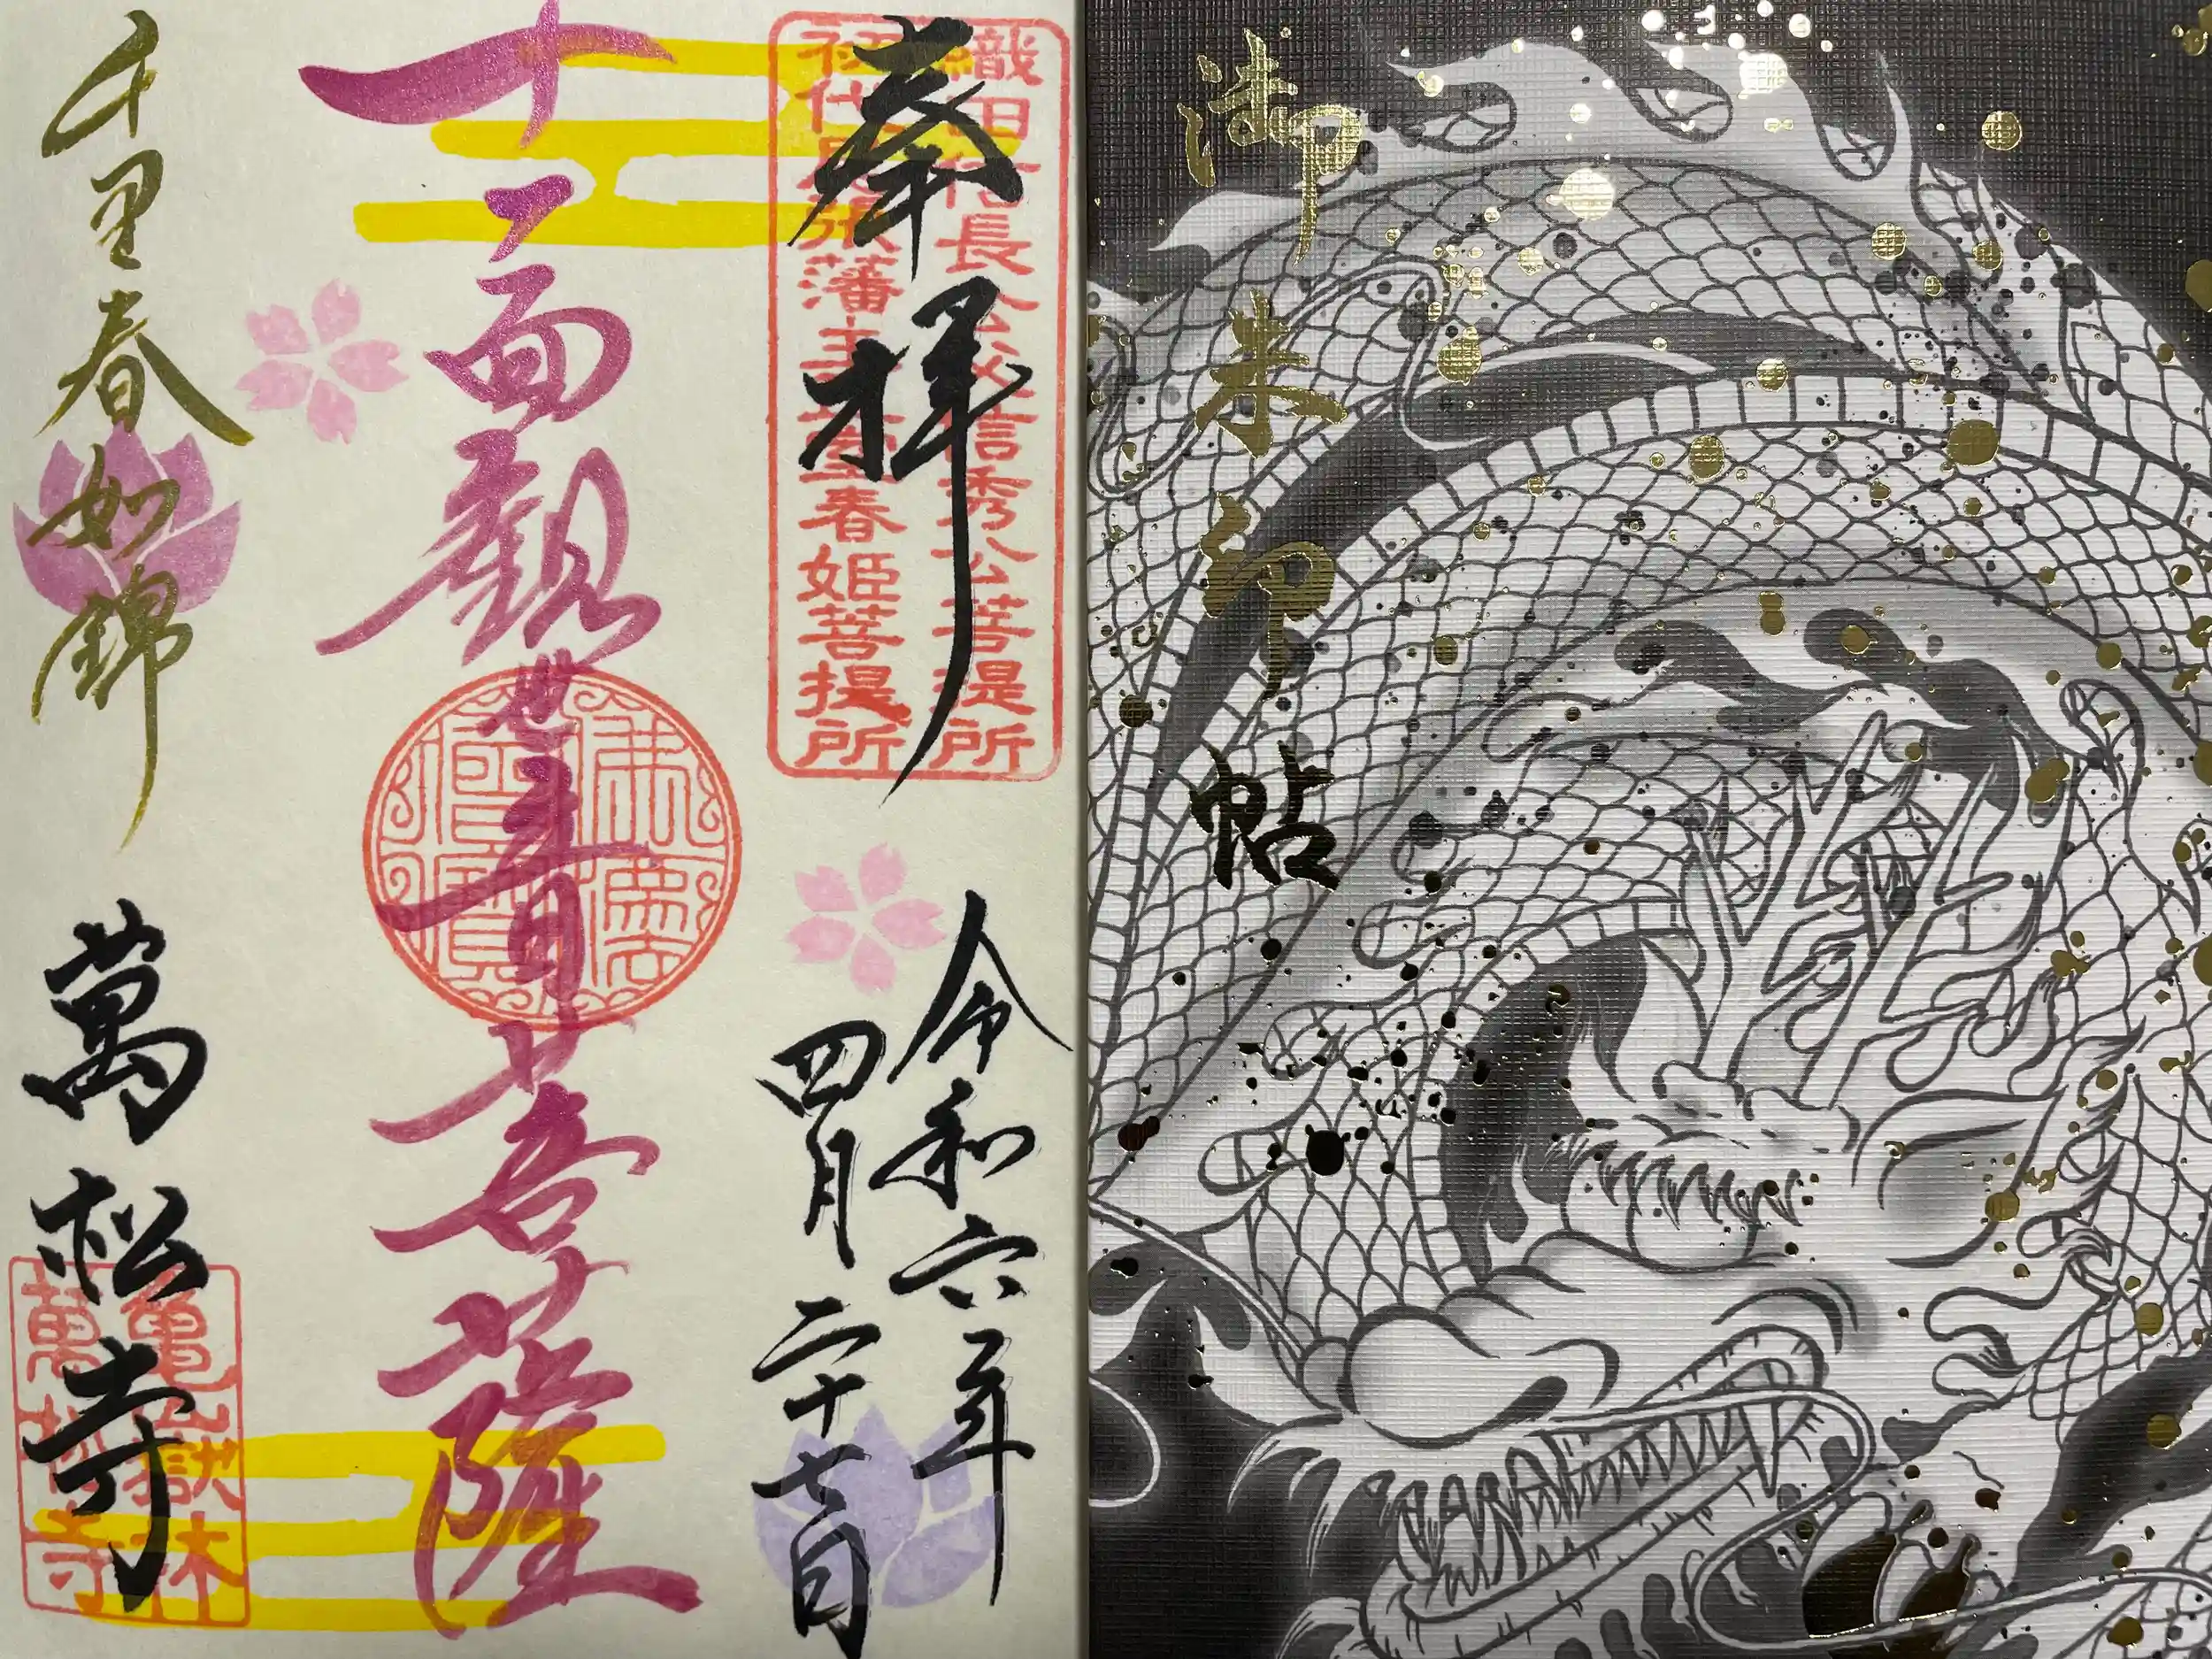 御朱印帖
奉拝
織田信長公父信秀公菩提所
初代尾張藩主正室春姫菩提所
令和六年
四月二十七日
十一面観世音菩薩
佛法僧寶
千里春如錦
萬松寺
亀嶽林
萬松寺